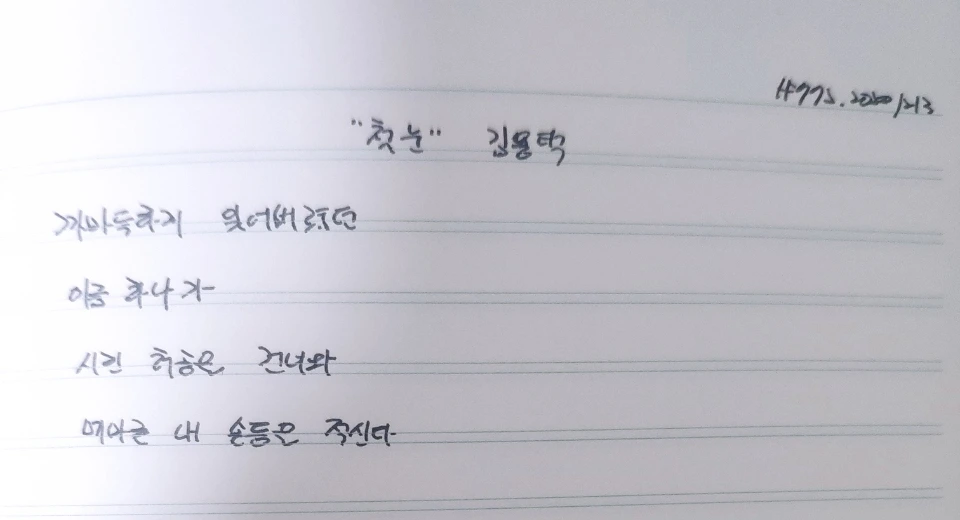 #775. 20201213
"첫눈" 김용택
까마득하게 잊어버렸던
이름 하나가
시린 허공을 건너와
메마른 내 손등을 적신다